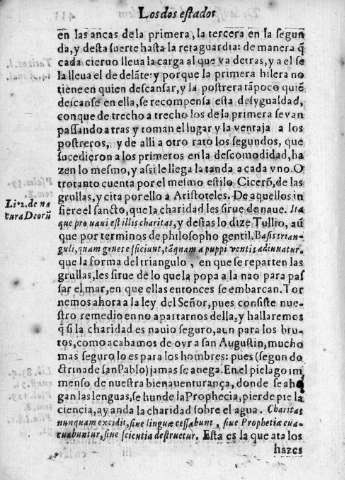 Los dos estados
en las ancas de la primera, la tercera en la segun
da, y desta suerte hasta la retaguardia: de manera q̃
cada cieruo lleua la carga al que va detras, y a el se
la lleua el de delãte: y porque la primera hilera no
tiene en quien descansar, y la postrera tãpoco quiẽ
descanse en ella, se recompensa esta desygualdad,
con que de trecho a trecho los de la primera se van
passando a tras y toman el lugar y la ventaja a los
postreros, y de alli a otro rato los segundos, que
sucedieron a los primeros en la descomodidad, ha
zen lo mesmo, y assi le llega la tanda a cada vno. O
tro tanto cuenta por el mesmo estilo Cicerõ, de las
grullas, y cita por ello a Aristoteles. De aquellos in
Li. 2. de na
tura Deorũ
fiere el sancto, que la charidad les sirue de naue. Ita
que pro naui est illis charitas, y destas lo dize Tullio, aũ
que por terminos de philosopho gentil. Basi trian-
guli, quam grues efficiunt, tãquam a puppi ventis adiunatur.
que la forma del triangulo, en que se reparten las
grullas, les sirue de lo que la popa a la nao para pas
sar el mar, en que ellas entonces se embarcan. Tor
nemos ahora a la ley del Señor, pues consiste nue-
stro remedio en no apartarnos della, y hallaremos
q̃ si la charidad es nauio seguro, aun para los bru-
tos, como acabamos de oyr a san Augustin, mucho
mas seguro lo es para los hombres: pues (segun do
ctrina de san Pablo) jamas se anega. En el pielago im
menso de nuestra bienauenturança, donde se aho
gan las lenguas, se hunde la Prophecia, pierde pie la
ciencia, ay anda la charidad sobre el agua. Charitas
nunquam excidit, siue linguæ cessabunt, siue Prophetiæ eua-
cuabuntur, siue scientia destruetur. Esta es la que ata los
hazes